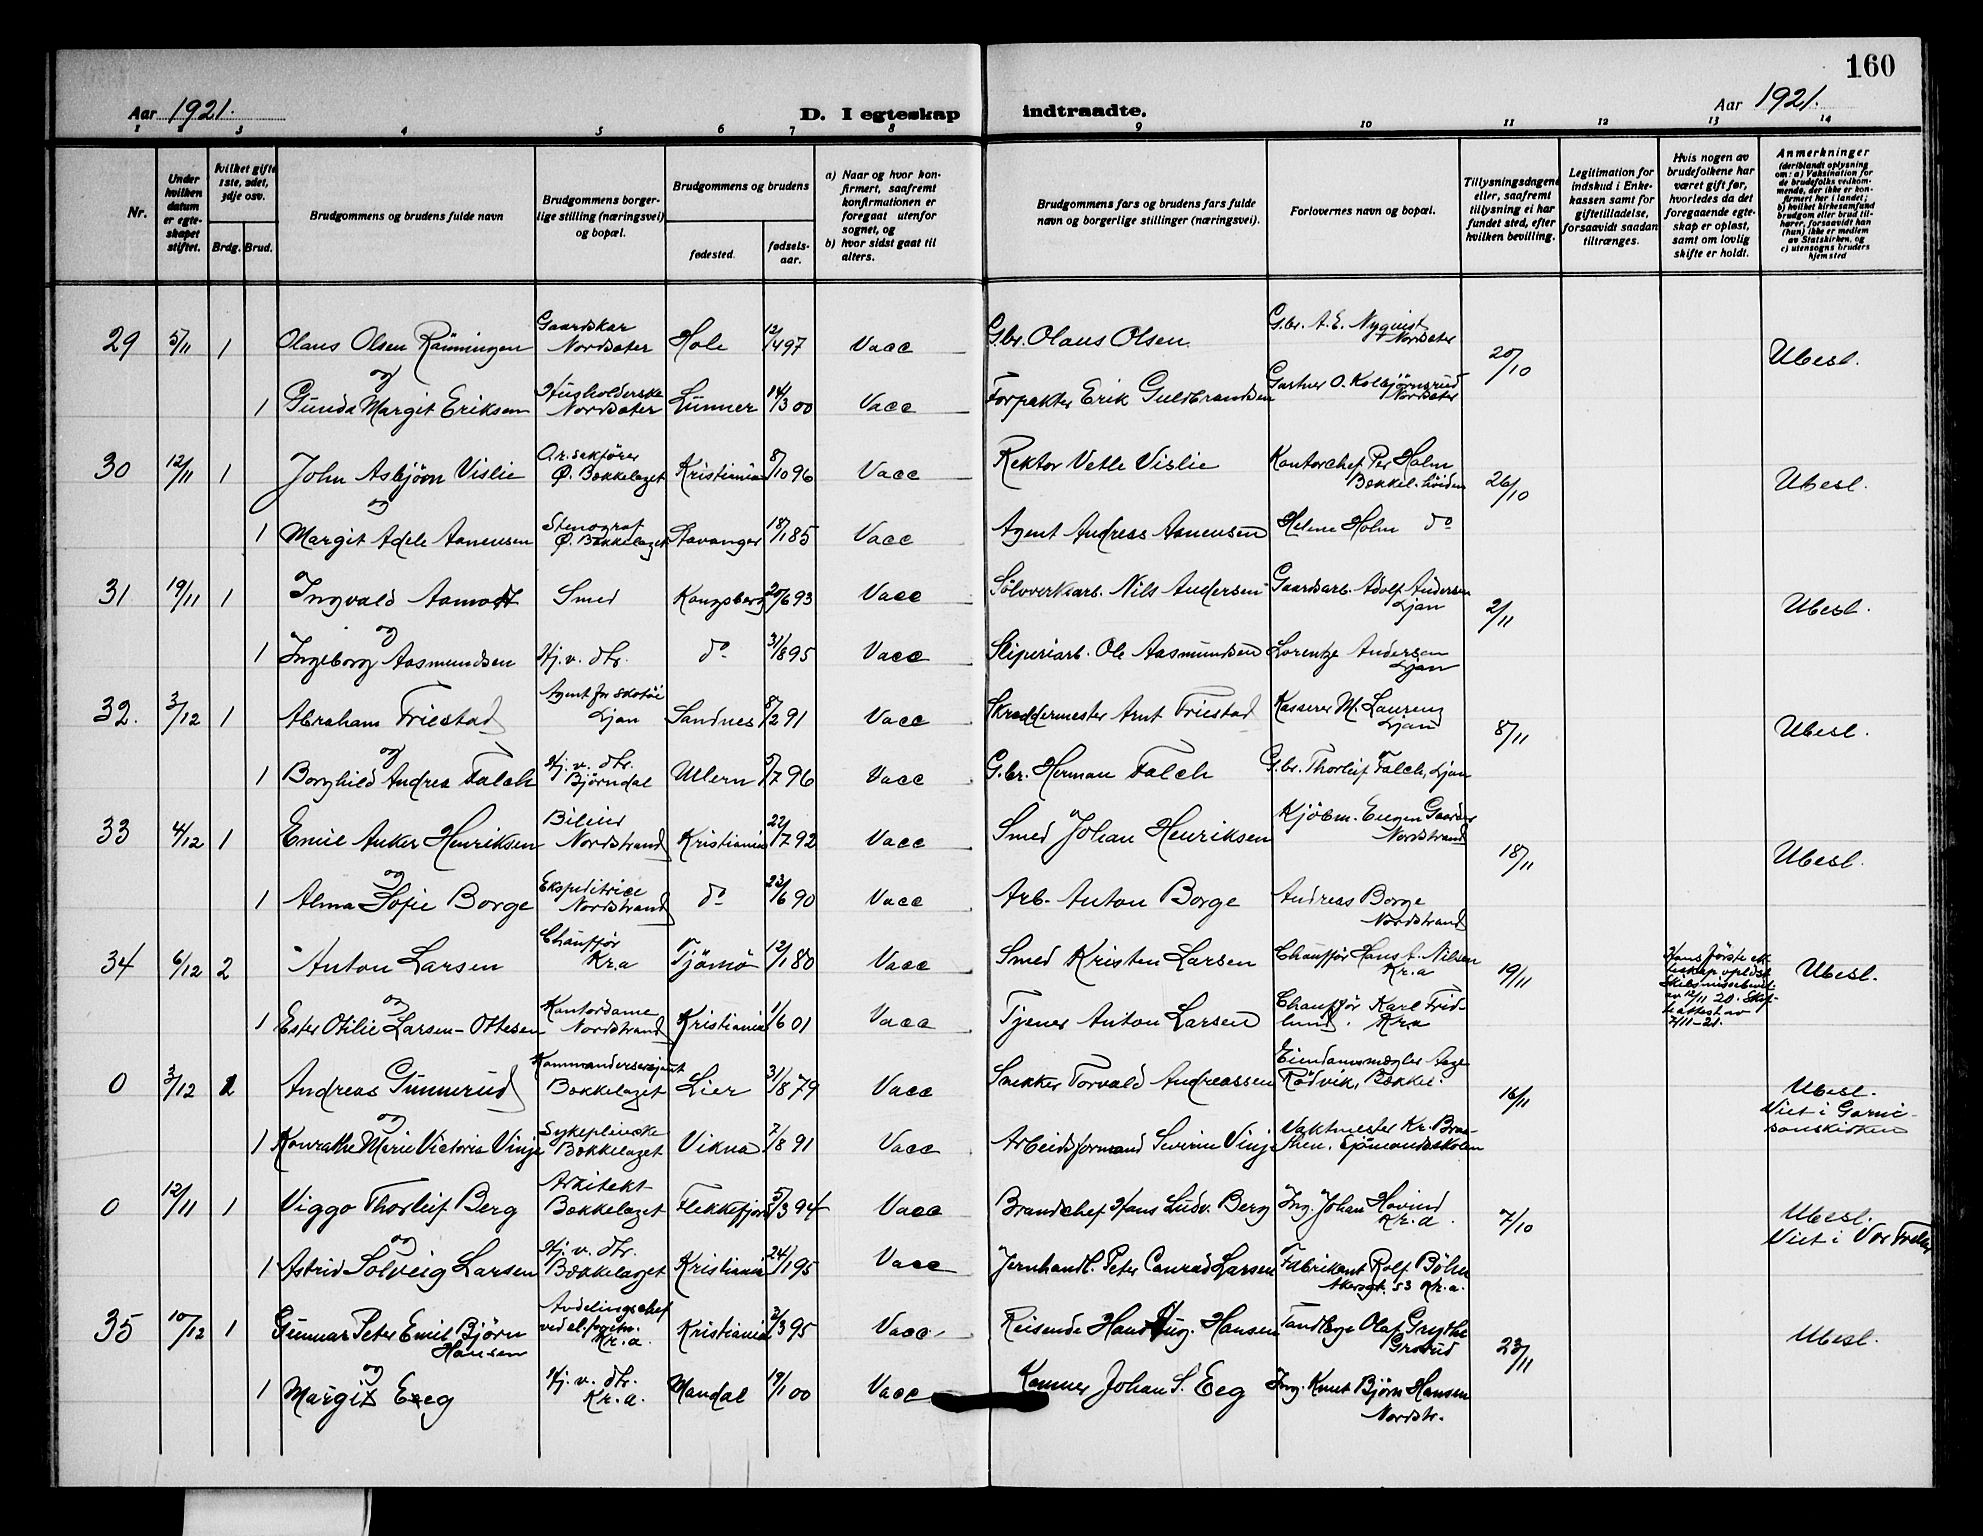 160
Aar 1921. D. I egteskap indtraadte. Aar 1921.
1 2 3 4 5 6 7 8 9 10 11 12 13 14
Nr.
Under hvilken datum er egteskapet stiftet.
hvilket gifte 1ste, 2det, 3dje osv.
Brdg. Brud.
Brudgommens og brudens fulde navn
Brudgommens borgerlige stilling (næringsvei) og bopæl.
Brudgommens og brudens
fødested.
fødselsaar.
a) Naar og hvor konfirmert, saafremt konfirmationen er foregaat utenfor sognet, og
b) hvor sidst gaat til alters.
Brudgommens fars og brudens fars fulde navn og borgerlige stillinger (næringsvei).
Forlovernes navn og bopæl.
Tillysningsdagene eller, saafremt tillysning ei har fundet sted, efter hvilken bevilling.
Legitimation for indskud i Enkekassen samt for giftetilladelse, forsaavidt saadan tiltrænges.
Hvis nogen av brudefolkene har været gift før, hvorledes da det foregaaende egteskap er opløst, samt om lovlig skifte er holdt.
Anmerkninger
(deriblandt oplysning om: a) Vaksination for de brudefolks vedkommende, der ikke er konfirmert her i landet; b) hvilket kirkesamfund brudgom eller brud tilhører, forsaavidt han (hun) ikke er medlem av Statskirken, og c) utensogns bruders hjemsted
29 5/11 1 Olaus Olsen Rønningen Gaardskar Nordsæter Hole 12/4 97 Vacc G.br. Olaus Olsen G.br. A. E. Nyquist Nordsæter 20/10 Ubesl.
og
1 Gunda Margit Eriksen Husholderske Nordsæter Lunner 14/3 00 Vacc Forpakter Erik Guldbrandsen Gartner O. Kolbjørnsrud Nordsæter
30 12/11 1 John Asbjørn Vislie O.r.sakfører Ø. Bækkelaget Kristiania 8/10 96 Vacc Rektor Vetle Vislie Kontorchef Per Holm Bækkel. høiden 26/10 Ubesl.
og
1 Margit Adele Aanensen Stenograf Ø. Bækkelaget Stavanger 18/1 85 Vacc Agent Andreas Aanensen Helene Holm do
31 19/11 1 Ingvald Aamodt Smed Kongsberg 20/6 93 Vacc Sølvverksarb. Nils Andersen Gaardsarb. Adolf Andersen Ljan 2/11 Ubesl.
og
1 Ingeborg Aasmundsen Hj. v. dtr. do 31/8 95 Vacc Sliperiarb. Ole Aasmundsen Lorentze Andersen Ljan
32. 3/12 1 Abraham Friestad Agent for skotøi Ljan Sandnes 8/2 91 Vacc Skræddermester Arnt Friestad Kasserer M. Laurenz Ljan 8/11 Ubesl.
og
1 Borghild Andrea Falch Hj. v. dtr. Bjørndal Ullern 5/7 96 Vacc G.br. Herman Falch G.br. Thorleif Falch, Ljan
33 4/12 1 Emil Anker Henriksen Bileier Nordstrand Kristiania 22/7 92 Vacc Smed Johan Henriksen Kjøbm. Eugen Gaarder Nordstrand 18/11 Ubesl.
og
1 Alma Sofie Borge Ekspeditrice Nordstrand do 23/6 90 Vacc Arb. Anton Borge Andreas Borge Nordstrand
34 6/12 2 Anton Larsen Chauffør Kr.a Tjømø 12/1 80 Vacc Smed Kristen Larsen Chauffør Hans A. Nilsen Kr.a 19/11 Hans første ekteskap opløst Ubesl.
og
1 Ester Otilie Larsen-Ottesen Kontordame Nordstrand Kristiania 1/6 01 Vacc Tjener Anton Larsen Chauffør Karl Fridlund. Kra
0 3/12 1 Andreas Gunnerud Kommandersersjant Bækkelaget Lier 31/8 79 Vacc Snekker Torvald Andreassen Eiendomsmægler Aage Rødvik, Bækkel. 16/11 Ubesl. Viet i Garnisonskirken
og
1 Konrathe Marie Victoria Vinje Sykepleierske Bækkelaget Vikna 7/8 91 Vacc Arbeidsformand Severin Vinje Vaktmester Kr. Braathen, Sjømandsskolen
0 12/11 1 Viggo Thorleif Berg Arkitekt Bækkelaget Flekkefjord 5/3 94 Vacc Brandchef Hans Ludv. Berg Ing. Johan Hovind Kr.a. 7/10 Ubesl. Viet i Vor Frelser
og
1 Astrid Solveig Larsen Hj. v. dtr. Bækkelaget Kristiania 24/1 95 Vacc Jernhandl. Peter Conrad Larsen Fabrikant Rolf Bøhn Akersgt. 53 Kr.a.
35 10/12 1 Gunnar Peter Emil Bjørn Hansen Avdelingschef ved el. foretn. Kr.a. Kristiania 2/3 95 Vacc. Reisende Hans Aug. Hansen Tandlæge Olaf Grythe Grorud 23/11 Ubesl.
og
1 Margit Eeg Hj. v. dtr. Kr.a. Mandal 19/1 00 Vacc Kemner Johan S. Eeg Ing. Knut Bjørn Hansen Nordstr.